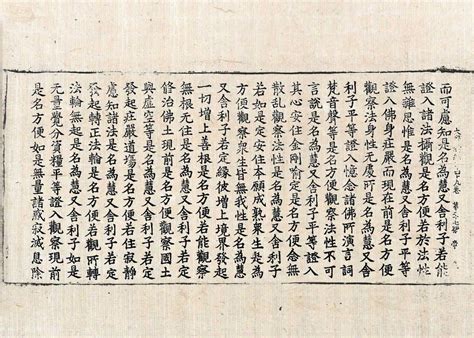 而可應知是名為慧又舍利子若能
證入諸法攝觀是名方便若於法性
無難思惟是名為慧又舍利子平等
證入佛身莊嚴而現在前是名方便
觀察法身性无所是名為慧又舍
利子平等證入憶念諸佛所演言詞
梵音聲等是名方便觀察法性不可
言說是名為慧又舍利子平等證入
其心安住金剛喻定是名方便念無
散亂觀察法性是名為慧又舍利子
若如是定安住本願成熟衆生是為
方便觀察衆生皆無我性是名為慧
又舍利子若定緣彼增上境界發起
一切增上善根是名方便若能觀察
無根无住是名為慧又舍利子若定
修治佛土現前是名方便觀察國土
與虛空等是名為慧又舍利子若定
發起莊嚴道場是名方便若住寂靜
應知諸法是名為慧又舍利子若定
發起轉正法輪是名方便若觀所轉
法輪無起是名為慧又舍利子如是
无量覺分資糧平等證入觀察現前
是名方便如是無量諸寂滅息除